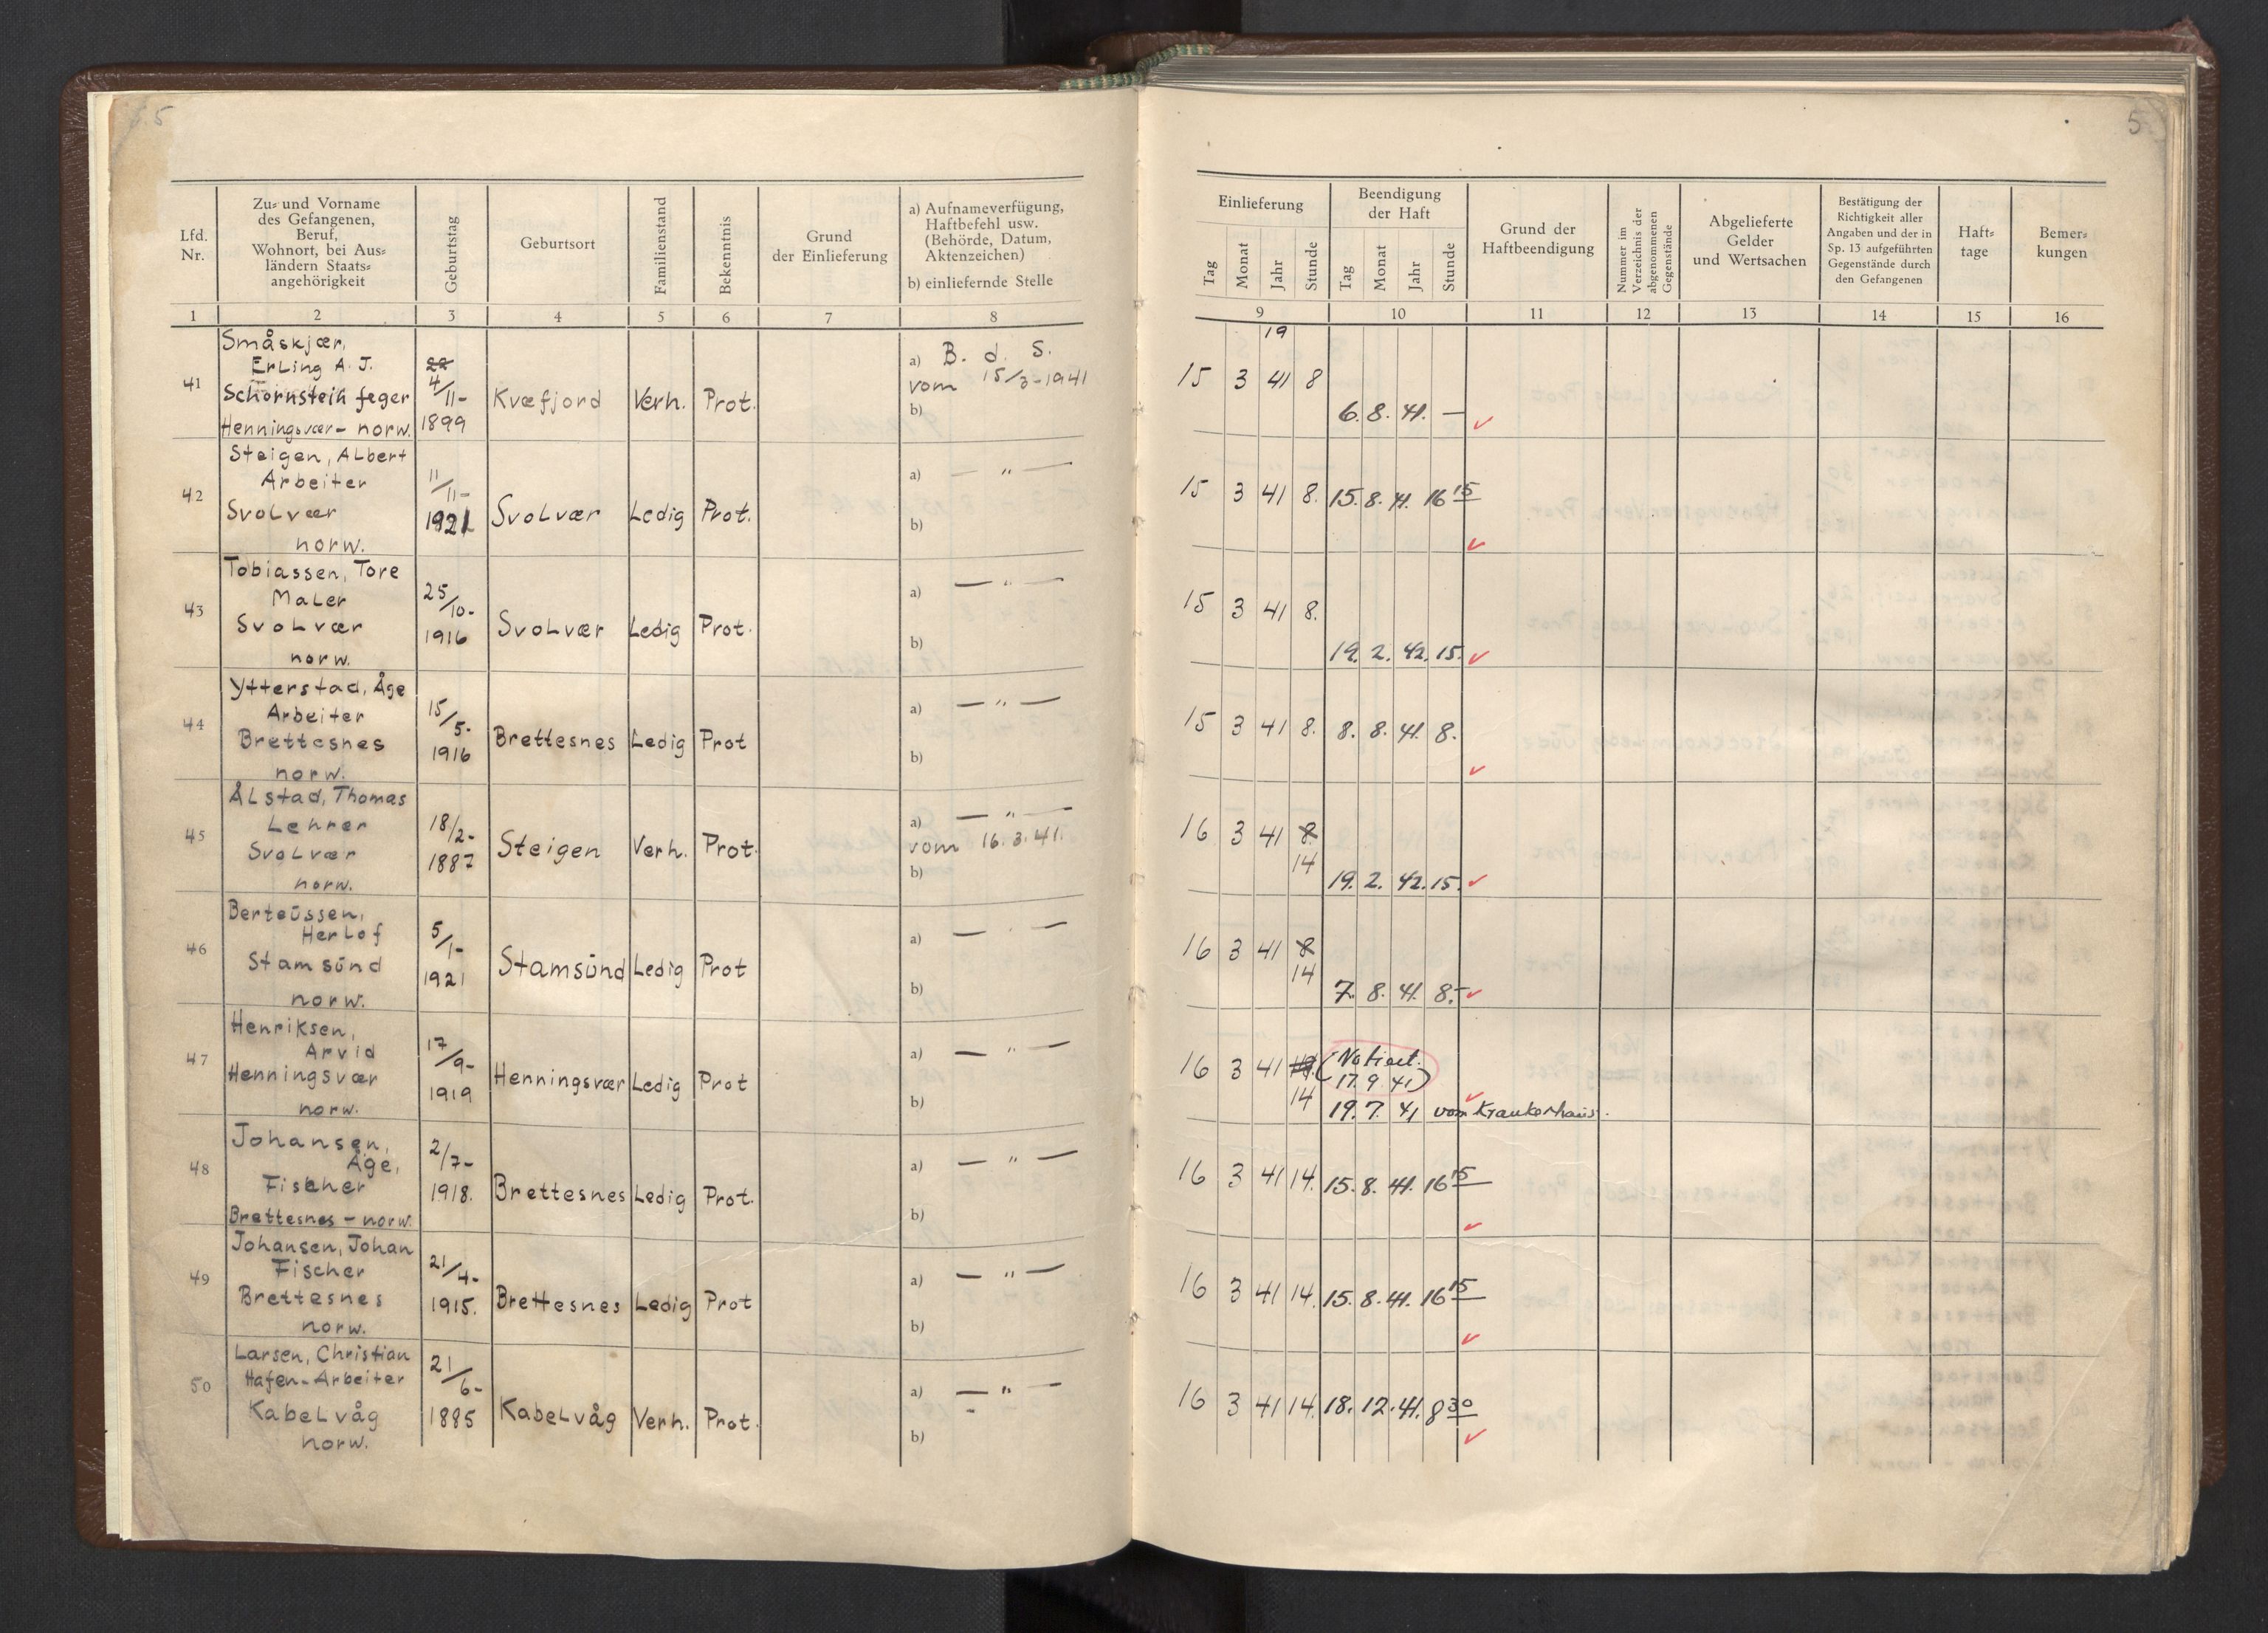 5
5
Lfd.
Nr.
Zu- und Vorname
des Gefangenen,
Beruf,
Wohnort, bei Aus-
ländern Staats-
angehörigkeit
Geburtstag
Geburtsort
Familienstand
Bekenntnis
Grund
der Einlieferung
a) Aufnameverfügung,
Haftbefehl usw.
(Behörde, Datum,
Aktenzeichen)
b) einliefernde Stelle
Einlieferung
Tag Monat Jahr Stunde
Beendigung
der Haft
Tag Monat Jahr Stunde
Grund der
Haftbeendigung
Nummer im
Verzeichnis der
abgenommenen
Gegenstände
Abgelieferte
Gelder
und Wertsachen
Bestätigung der
Richtigkeit aller
Angaben und der in
Sp. 13 aufgeführten
Gegenstände durch
den Gefangenen
Haft-
tage
Bemer-
kungen
1 2 3 4 5 6 7 8 9 10 11 12 13 14 15 16
41
Småskjær,
Erling A. J.
Schornstein feger
Henningsvær- norw.
22
4/11-
1899
Kvæfjord Verh. Prot.
a) B. d. S.
vom 15/3-1941
b)
19
15 3 41 8
6. 8. 41. — ✓
42
Steigen, Albert
Arbeiter
Svolvær
norw.
11/11-
1921
Svolvær Ledig Prot.
a) — " —
b)
15 3 41 8. 15. 8. 41. 16 15
✓
43
Tobiassen, Tore
Maler
Svolvær
norw.
25/10-
1916
Svolvær Ledig Prot.
a) — " —
b)
15 3 41 8.
19. 2. 42. 15. ✓
44
Ytterstad, Åge
Arbeiter
Brettesnes
norw.
15/5-
1916
Brettesnes Ledig Prot
a) — " —
b)
15 3 41 8. 8. 8. 41. 8.
✓
45
Ålstad, Thomas
Lehrer
Svolvær
norw.
18/2-
1887
Steigen Verh. Prot.
a) — " —
vom 16.3.41.
b)
16 3 41 8
14
19. 2. 42. 15. ✓
46
Berteüssen,
Herlof
Stamsünd
norw.
5/1-
1921
Stamsünd Ledig Prot
a) — " —
b)
16 3 41 8
14
7. 8. 41. 8.- ✓
47
Henriksen,
Arvid
Henningsvær
norw.
17/9-
1919
Henningsvær Ledig Prot
a) — " —
b)
16 3 41
14
(Notiert.
17. 9 41)
19. 7. 41 vom Krankenhaus.
✓
48
Johansen,
Åge,
Fischer
Brettesnes - norw.
2/7-
1918.
Brettesnes Ledig Prot.
a) — " —
b)
16 3 41 14. 15. 8. 41. 16 15
✓
49
Johansen, Johan
Fischer
Brettesnes
norw.
21/4-
1915.
Brettesnes Ledig Prot
a) — " —
b)
16 3 41 14. 15. 8. 41. 16 15
✓
50
Larsen, Christian
Hafen-Arbeiter
Kabelvåg
norw.
21/6-
1885
Kabelvåg Verh. Prot.
a) — " —
b)
16 3 41 14. 18. 12. 41. 8 30
✓